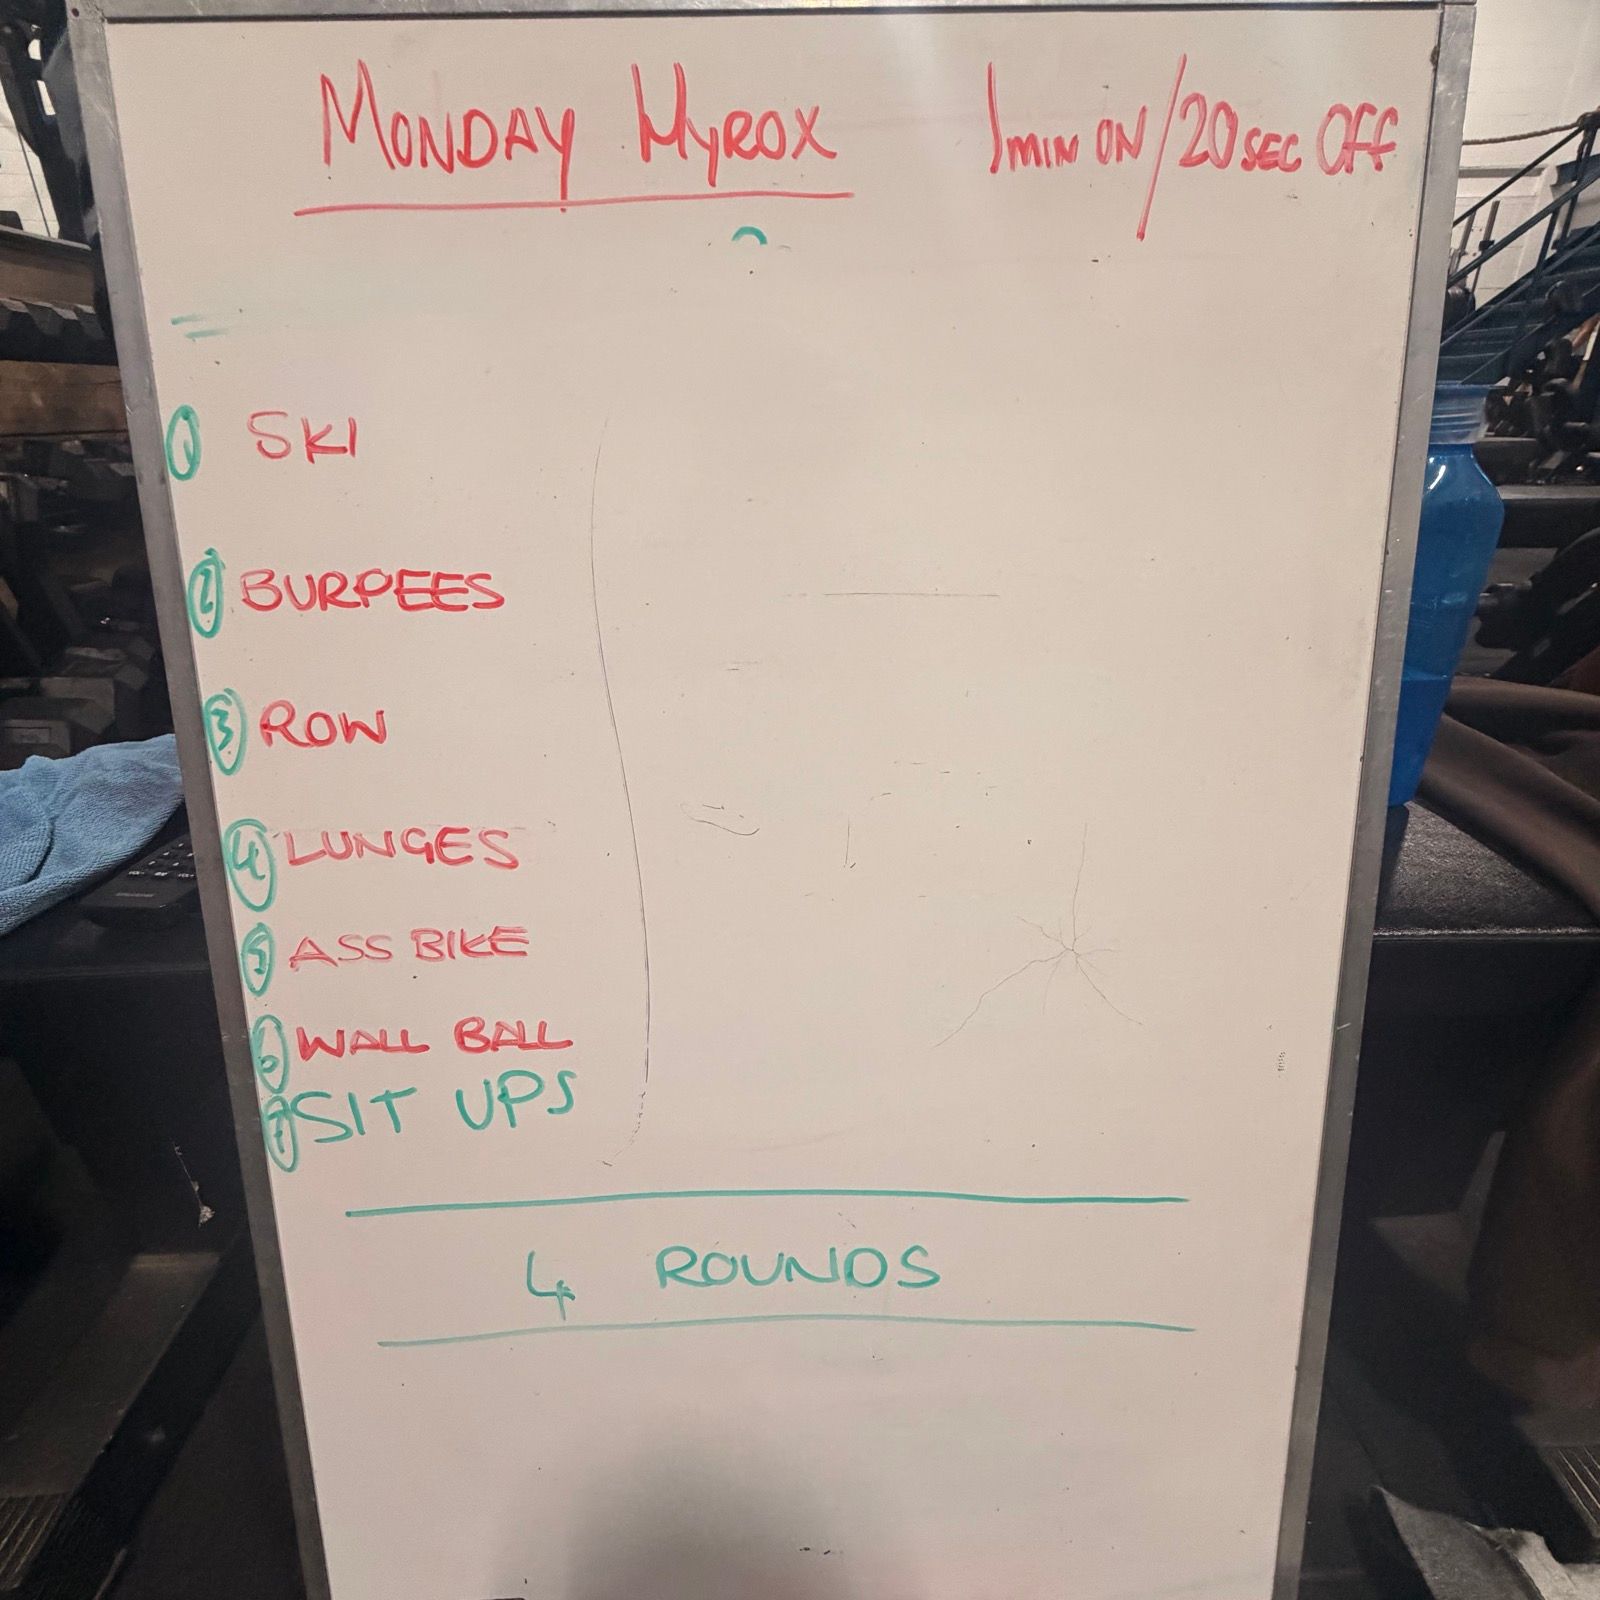 MONDAY HYROX
1 MIN ON / 20 SEC OFF
1 SKI
2 BURPEES
3 ROW
4 LUNGES
5 ASS BIKE
6 WALL BALL
7 SIT UPS
4 ROUNDS